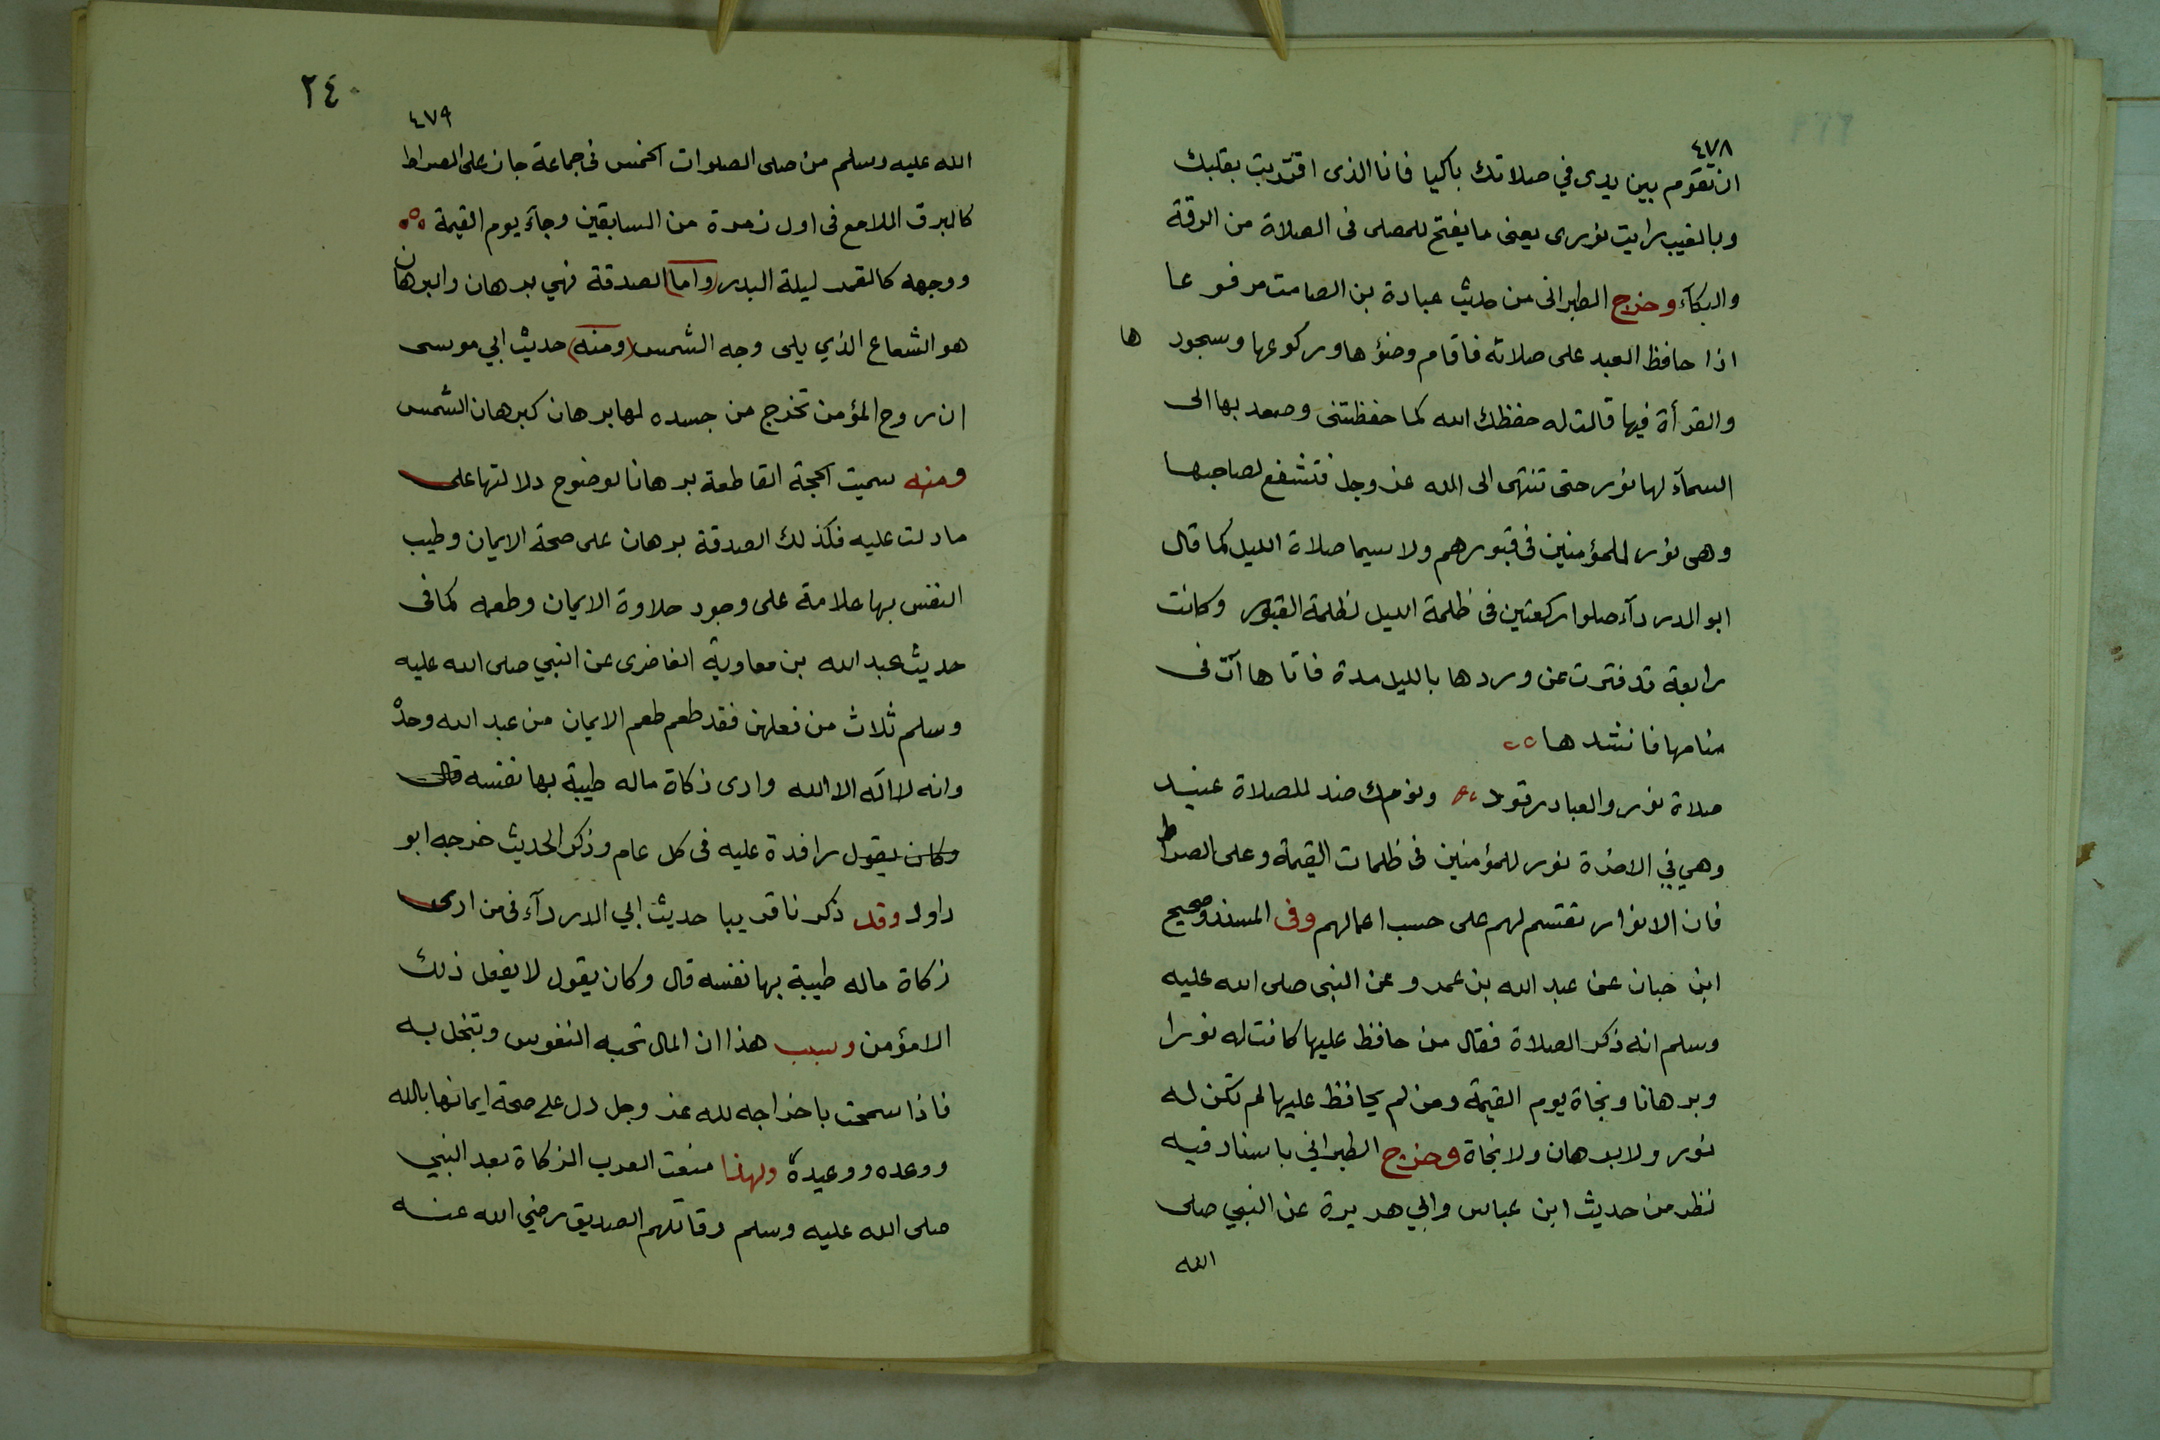 ٤٧٨
ان تقوم بين يدى في صلاتك باكيا فانا الذى اقتربت بقلبك
وبالغيب رايت نورى يعنى ما يفتح للمصلى فى الصلاة من الرقة
والبكآء وخرج الطبرانى من حديث عبادة بن الصامت مرفوعا
اذا حافظ العبد على صلاته فاقام وضؤها وركوعها وسجودها
والقرأة فيها قالت له حفظك الله كما حفظتنى وصعد بها الى
السمآء لها نور حتى تنتهى الى الله عز وجل فتشفع لصاحبها
وهى نور للمؤمنين فى قبورهم ولا سيما صلاة الليل كما قال
ابو الدردآء صلوا ركعتين فى ظلمة الليل لظلمة القبور وكانت
رابعة قد فترت عن وردها بالليل مدة فاتاها آت فى
منامها فانشدها
صلاة نور والعباد رقود ونومك ضد للصلاة عنيد
وهي في الاخرة نور للمؤمنين فى ظلمات القيمة وعلى الصراط
فان الانوار تقتسم لهم على حسب اعمالهم وفى المسند وصحيح
ابن حبان عن عبد الله بن عمرو عن النبى صلى الله عليه
وسلم انه ذكر الصلاة فقال من حافظ عليها كانت له نورا
وبرهانا ونجاة يوم القيمة ومن لم يحافظ عليها لم تكن له
نور ولا برهان ولا نجاة وخرج الطبراني باسناد فيه
نظر من حديث ابن عباس وابي هريرة عن النبي صلى
الله
٢٤٠
٤٧٩
الله عليه وسلم من صلى الصلوات الخمس فى جماعة جاز على الصراط
كالبرق اللامع فى اول زمرة من السابقين وجآء يوم القيمة
ووجهه كالقمر ليلة البدر (واما) الصدقة فهي برهان والبرهان
هو الشعاع الذي يلى وجه الشمس (ومنه) حديث ابي موسى
ان روح المؤمن تخرج من جسده لها برهان كبرهان الشمس
ومنه سميت الحجة القاطعة برهانا لوضوح دلالتها على
ما دلت عليه فكذلك الصدقة برهان على صحة الايمان وطيب
النفس بها علامة على وجود حلاوة الايمان وطعمه كما فى
حديث عبد الله بن معاوية الغاضرى عن النبي صلى الله عليه
وسلم ثلاث من فعلهن فقد طعم طعم الايمان من عبد الله وحده
وانه لا اله الا الله وادى زكاة ماله طيبة بها نفسه قال
وكان يقول رافدة عليه فى كل عام وذكر الحديث خرجه ابو
داود وقد ذكرنا قريبا حديث ابي الدردآء فى من ادى
زكاة ماله طيبة بها نفسه قال وكان يقول لا يفعل ذلك
الا مؤمن وسبب هذا ان المال تحبه النفوس وتبخل به
فاذا سمحت باخراجه لله عز وجل دل على صحة ايمانها بالله
ووعده ووعيده ولهذا منعت العرب الزكاة بعد النبي
صلى الله عليه وسلم وقاتلهم الصديق رضي الله عنه